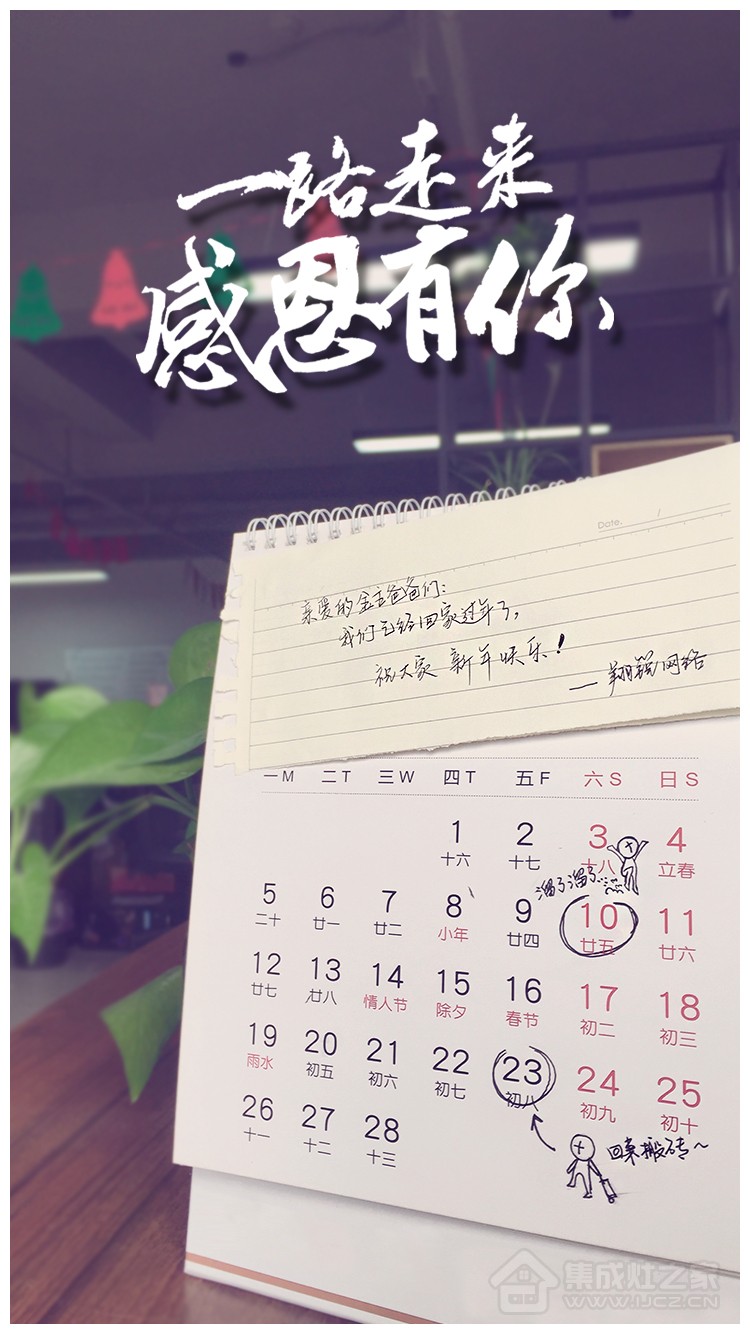 一路走来
感恩有你
Date. /
亲爱的金主爸爸们：
我们已经回家过年了，
祝大家 新年快乐！
—翔锐网络
一M 二T 三W 四T 五F 六S 日S
1 2 3 4
十六 十七 十八 立春
溜了溜了...
5 6 7 8 9 10 11
二十 廿一 廿二 小年 廿四 廿五 廿六
12 13 14 15 16 17 18
廿七 廿八 情人节 除夕 春节 初二 初三
19 20 21 22 23 24 25
雨水 初五 初六 初七 初八 初九 初十
26 27 28
十一 十二 十三
回来搬砖~
集成灶之家
WWW.IJCZ.CN